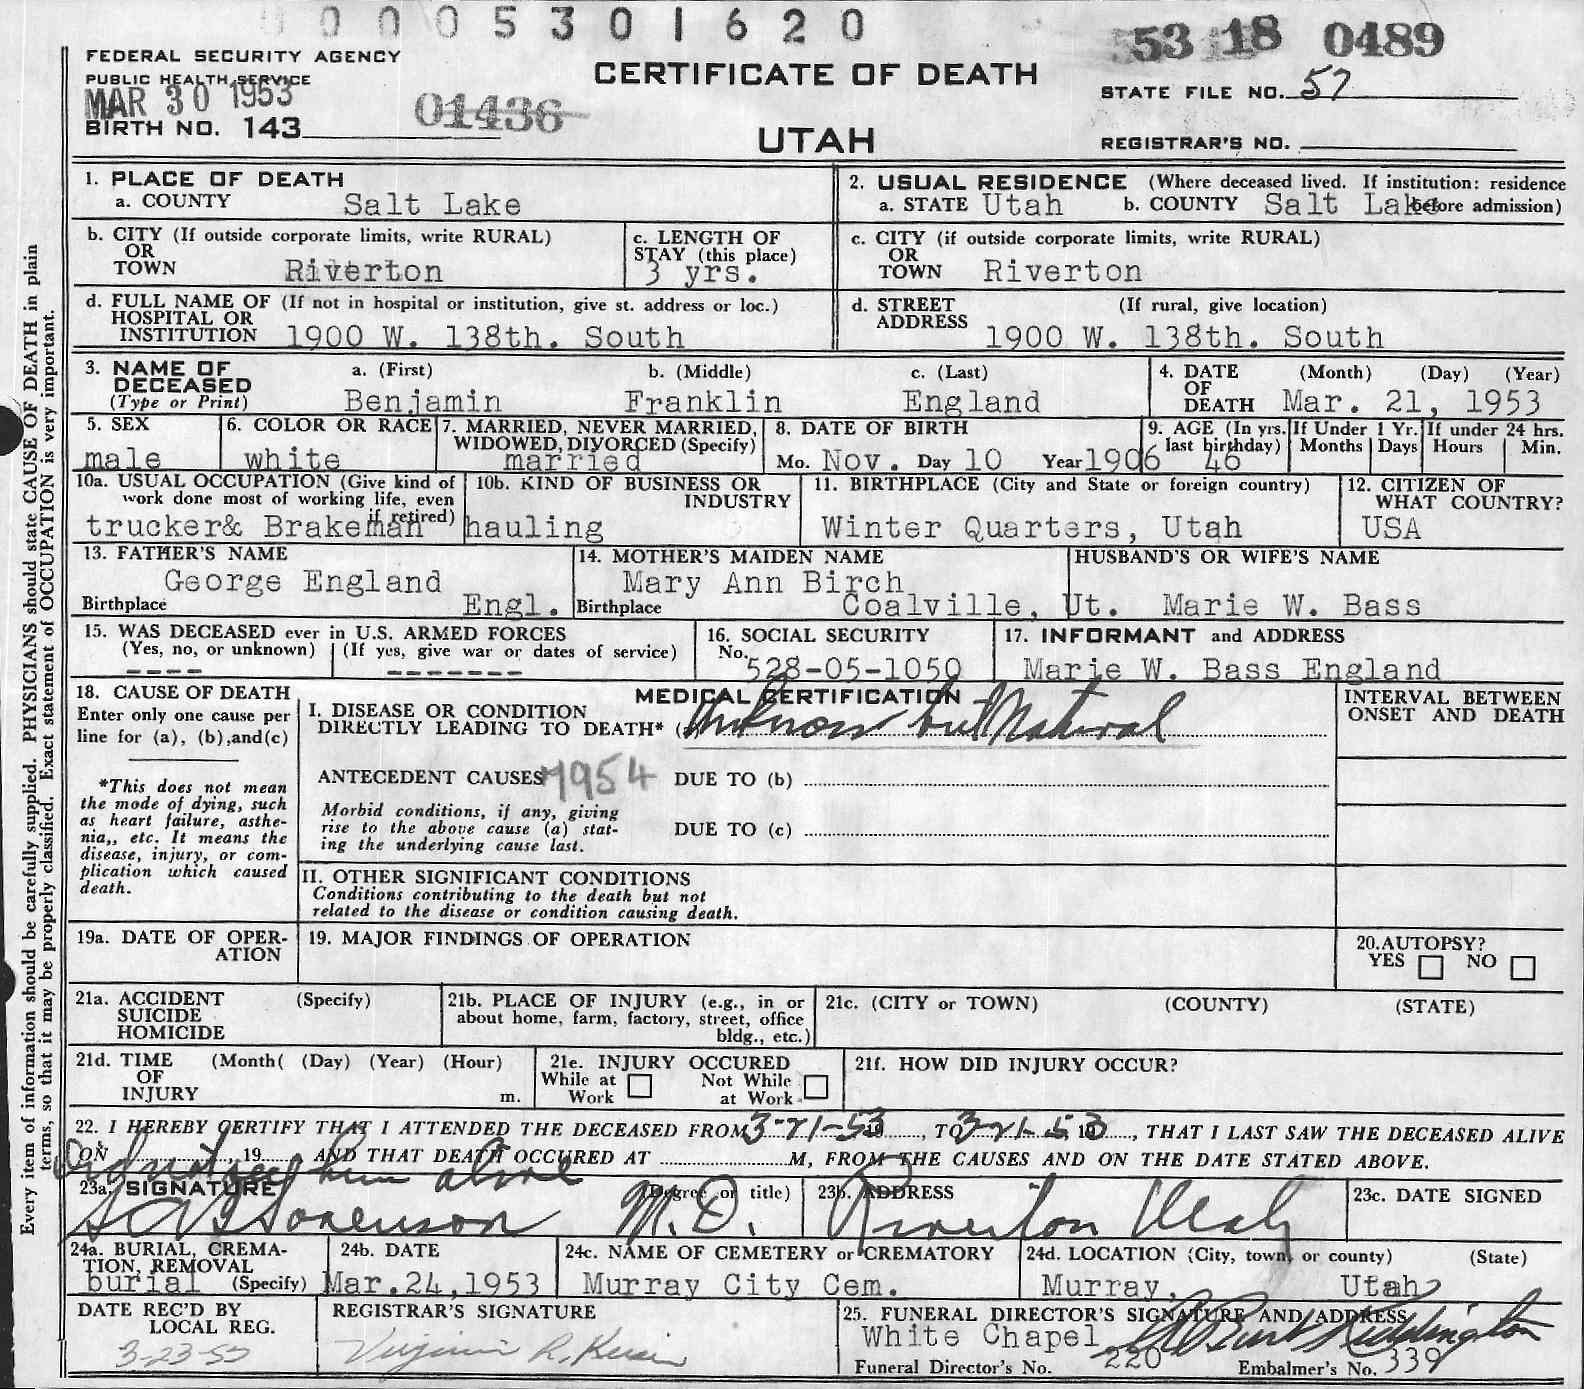 0 0 0 5 3 0 1 6 2 0
53 18 0489
FEDERAL SECURITY AGENCY
PUBLIC HEALTH SERVICE
MAR 30 1953
BIRTH NO. 143
01436
CERTIFICATE OF DEATH
UTAH
STATE FILE NO. 57
REGISTRAR'S NO.
1. PLACE OF DEATH
a. COUNTY Salt Lake
2. USUAL RESIDENCE (Where deceased lived. If institution: residence
a. STATE Utah b. COUNTY Salt Lake before admission)
b. CITY (If outside corporate limits, write RURAL)
OR
TOWN Riverton
c. LENGTH OF
STAY (this place)
3 yrs.
c. CITY (if outside corporate limits, write RURAL)
OR
TOWN Riverton
d. FULL NAME OF (If not in hospital or institution, give st. address or loc.)
HOSPITAL OR
INSTITUTION 1900 W. 138th. South
d. STREET (If rural, give location)
ADDRESS 1900 W. 138th. South
3. NAME OF a. (First) b. (Middle) c. (Last)
DECEASED
(Type or Print) Benjamin Franklin England
4. DATE (Month) (Day) (Year)
OF
DEATH Mar. 21, 1953
5. SEX
male
6. COLOR OR RACE
white
7. MARRIED, NEVER MARRIED,
WIDOWED, DIVORCED (Specify)
married
8. DATE OF BIRTH
Mo. Nov. Day 10 Year 1906
9. AGE (In yrs.
last birthday)
46
If Under 1 Yr.
Months Days
If under 24 hrs.
Hours Min.
10a. USUAL OCCUPATION (Give kind of
work done most of working life, even
if retired)
trucker& Brakeman
10b. KIND OF BUSINESS OR
INDUSTRY
hauling
11. BIRTHPLACE (City and State or foreign country)
Winter Quarters, Utah
12. CITIZEN OF
WHAT COUNTRY?
USA
13. FATHER'S NAME
George England
Birthplace Engl.
14. MOTHER'S MAIDEN NAME
Mary Ann Birch
Birthplace Coalville, Ut.
HUSBAND'S OR WIFE'S NAME
Marie W. Bass
15. WAS DECEASED ever in U.S. ARMED FORCES
(Yes, no, or unknown) (If yes, give war or dates of service)
---- -------
16. SOCIAL SECURITY
No. 528-05-1050
17. INFORMANT and ADDRESS
Marie W. Bass England
18. CAUSE OF DEATH
Enter only one cause per
line for (a), (b),and(c)
*This does not mean
the mode of dying, such
as heart failure, asthe-
nia,, etc. It means the
disease, injury, or com-
plication which caused
death.
MEDICAL CERTIFICATION
I. DISEASE OR CONDITION
DIRECTLY LEADING TO DEATH* (a) Unknown but Natural
ANTECEDENT CAUSES 7954 DUE TO (b)
Morbid conditions, if any, giving
rise to the above cause (a) stat-
ing the underlying cause last.
DUE TO (c)
INTERVAL BETWEEN
ONSET AND DEATH
II. OTHER SIGNIFICANT CONDITIONS
Conditions contributing to the death but not
related to the disease or condition causing death.
19a. DATE OF OPER-
ATION
19. MAJOR FINDINGS OF OPERATION
20.AUTOPSY?
YES NO
21a. ACCIDENT (Specify)
SUICIDE
HOMICIDE
21b. PLACE OF INJURY (e.g., in or
about home, farm, factory, street, office
bldg., etc.)
21c. (CITY or TOWN) (COUNTY) (STATE)
21d. TIME (Month( (Day) (Year) (Hour)
OF
INJURY m.
21e. INJURY OCCURED
While at Work Not While at Work
21f. HOW DID INJURY OCCUR?
22. I HEREBY CERTIFY THAT I ATTENDED THE DECEASED FROM 3-21-53 19, TO 3-21-53 19, THAT I LAST SAW THE DECEASED ALIVE
ON , 19 AND THAT DEATH OCCURED AT M, FROM THE CAUSES AND ON THE DATE STATED ABOVE.
Did not see him alive
23a. SIGNATURE (Degree or title)
Sorenson M.D.
23b. ADDRESS
Riverton Utah
23c. DATE SIGNED
24a. BURIAL, CREMA-
TION, REMOVAL
burial (Specify)
24b. DATE
Mar.24,1953
24c. NAME OF CEMETERY or CREMATORY
Murray City Cem.
24d. LOCATION (City, town, or county) (State)
Murray, Utah
DATE REC'D BY
LOCAL REG.
3-23-53
REGISTRAR'S SIGNATURE
Virginia R.
25. FUNERAL DIRECTOR'S SIGNATURE AND ADDRESS
White Chapel
Funeral Director's No. 220 Embalmer's No. 339
Every item of information should be carefully supplied. PHYSICIANS should state CAUSE OF DEATH in plain
terms, so that it may be properly classified. Exact statement of OCCUPATION is very important.